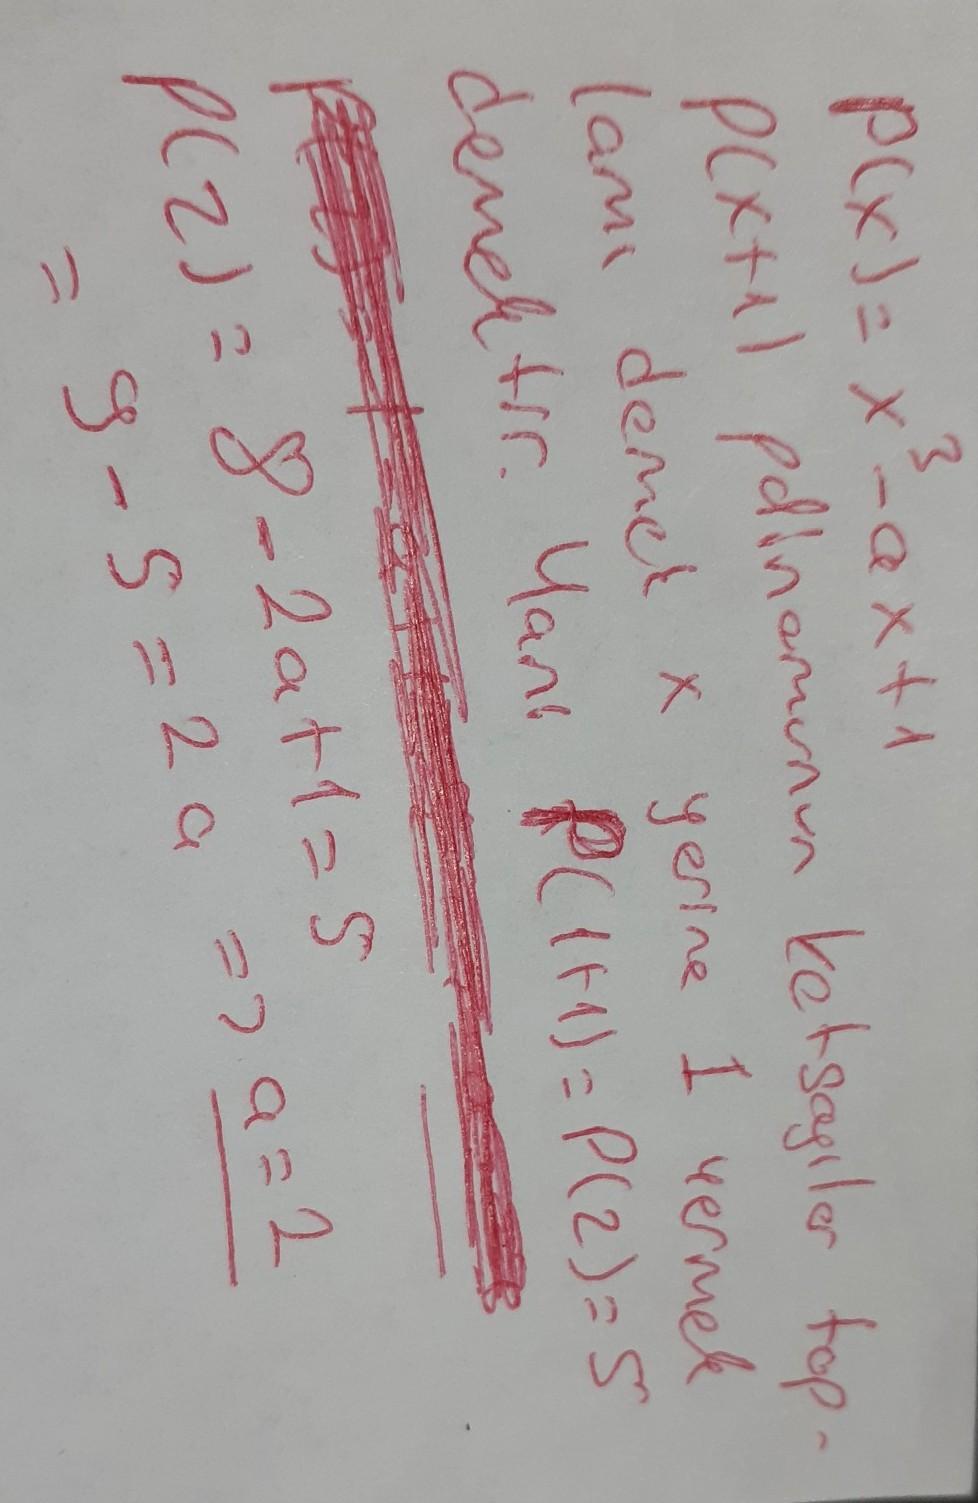 P(x) = x³ - ax + 1
P(x+1) polinomunun katsayılar top-
lamı demek x yerine 1 vermek
demektir. Yani P(1+1) = P(2) = 5
P(2) = 8 - 2a + 1 = 5
= 9 - 5 = 2a => a = 2